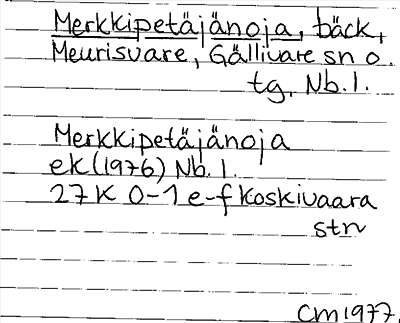 Merkkipetäjänoja, bäck,
Meurisvare, Gällivare sn o.
tg, Nb. l.
Merkkipetäjänoja
ek (1976) Nb. l.
27K 0-1 e-f Koskivaara
str
CM 1977.